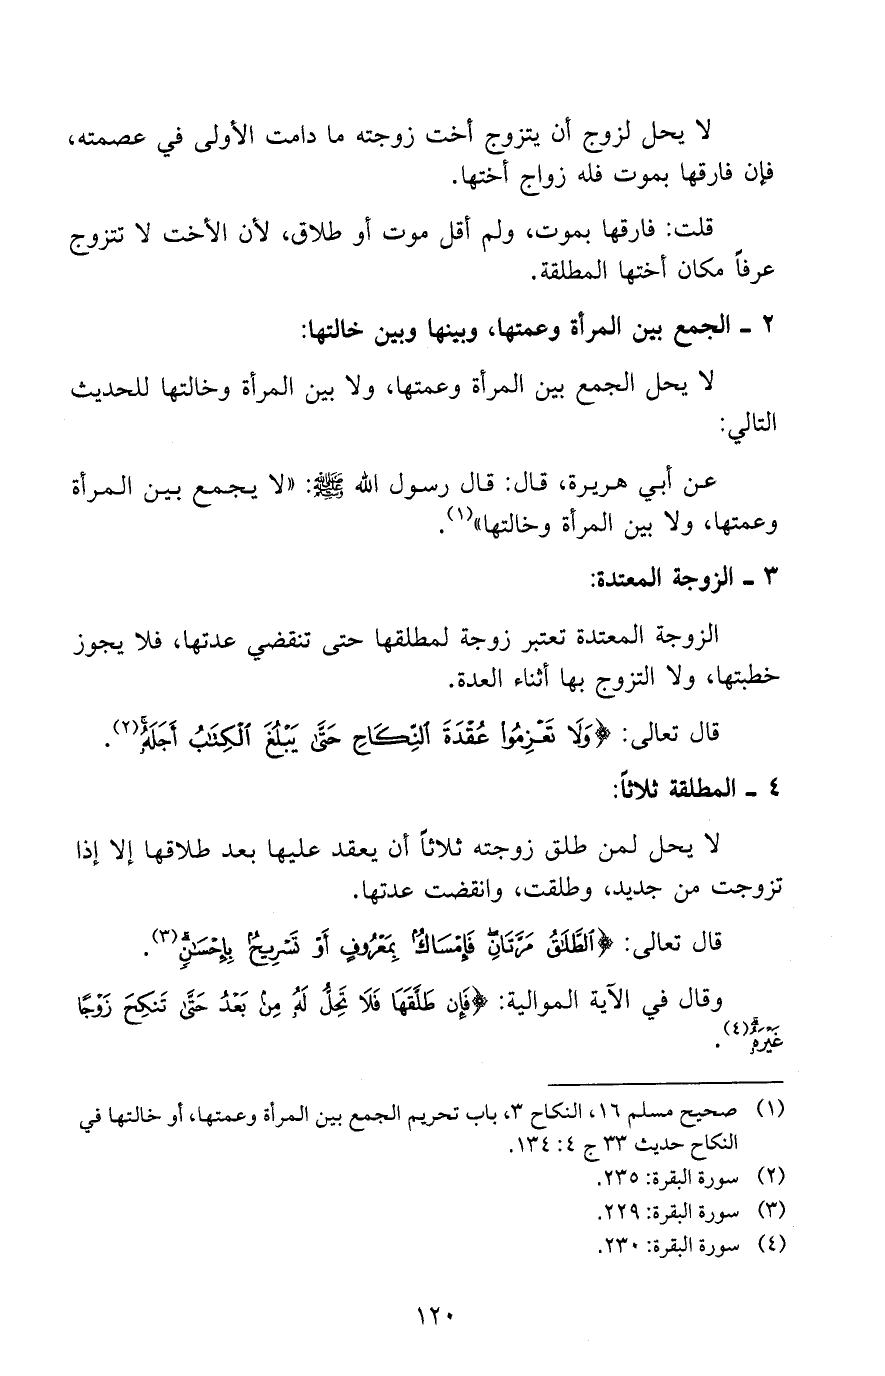 لا يحل لزوج أن يتزوج أخت زوجته ما دامت الأولى في عصمته،
فإن فارقها بموت فله زواج أختها.
قلت: فارقها بموت، ولم أقل موت أو طلاق، لأن الأخت لا تتزوج
عرفاً مكان أختها المطلقة.
٢ ـ الجمع بين المرأة وعمتها، وبينها وبين خالتها:
لا يحل الجمع بين المرأة وعمتها، ولا بين المرأة وخالتها للحديث
التالي:
عن أبي هريرة، قال: قال رسول الله ﷺ: «لا يجمع بين المرأة
وعمتها، ولا بين المرأة وخالتها»(١).
٣ ـ الزوجة المعتدة:
الزوجة المعتدة تعتبر زوجة لمطلقها حتى تنقضي عدتها، فلا يجوز
خطبتها، ولا التزوج بها أثناء العدة.
قال تعالى: ﴿وَلَا تَعْزِمُوا۟ عُقْدَةَ ٱلنِّكَاحِ حَتَّىٰ يَبْلُغَ ٱلْكِتَٰبُ أَجَلَهُۥۚ(٢).
٤ ـ المطلقة ثلاثاً:
لا يحل لمن طلق زوجته ثلاثاً أن يعقد عليها بعد طلاقها إلا إذا
تزوجت من جديد، وطلقت، وانقضت عدتها.
قال تعالى: ﴿ٱلطَّلَٰقُ مَرَّتَانِۖ فَإِمْسَاكٌۢ بِمَعْرُوفٍ أَوْ تَسْرِيحٌۢ بِإِحْسَٰنٍۗ(٣).
وقال في الآية الموالية: ﴿فَإِن طَلَّقَهَا فَلَا تَحِلُّ لَهُۥ مِنۢ بَعْدُ حَتَّىٰ تَنكِحَ زَوْجًا
غَيْرَهُۥۗ(٤).
(١) صحيح مسلم ١٦، النكاح ٣، باب تحريم الجمع بين المرأة وعمتها، أو خالتها في
النكاح حديث ٣٣ ج ٤: ١٣٤.
(٢) سورة البقرة: ٢٣٥.
(٣) سورة البقرة: ٢٢٩.
(٤) سورة البقرة: ٢٣٠.
١٢٠